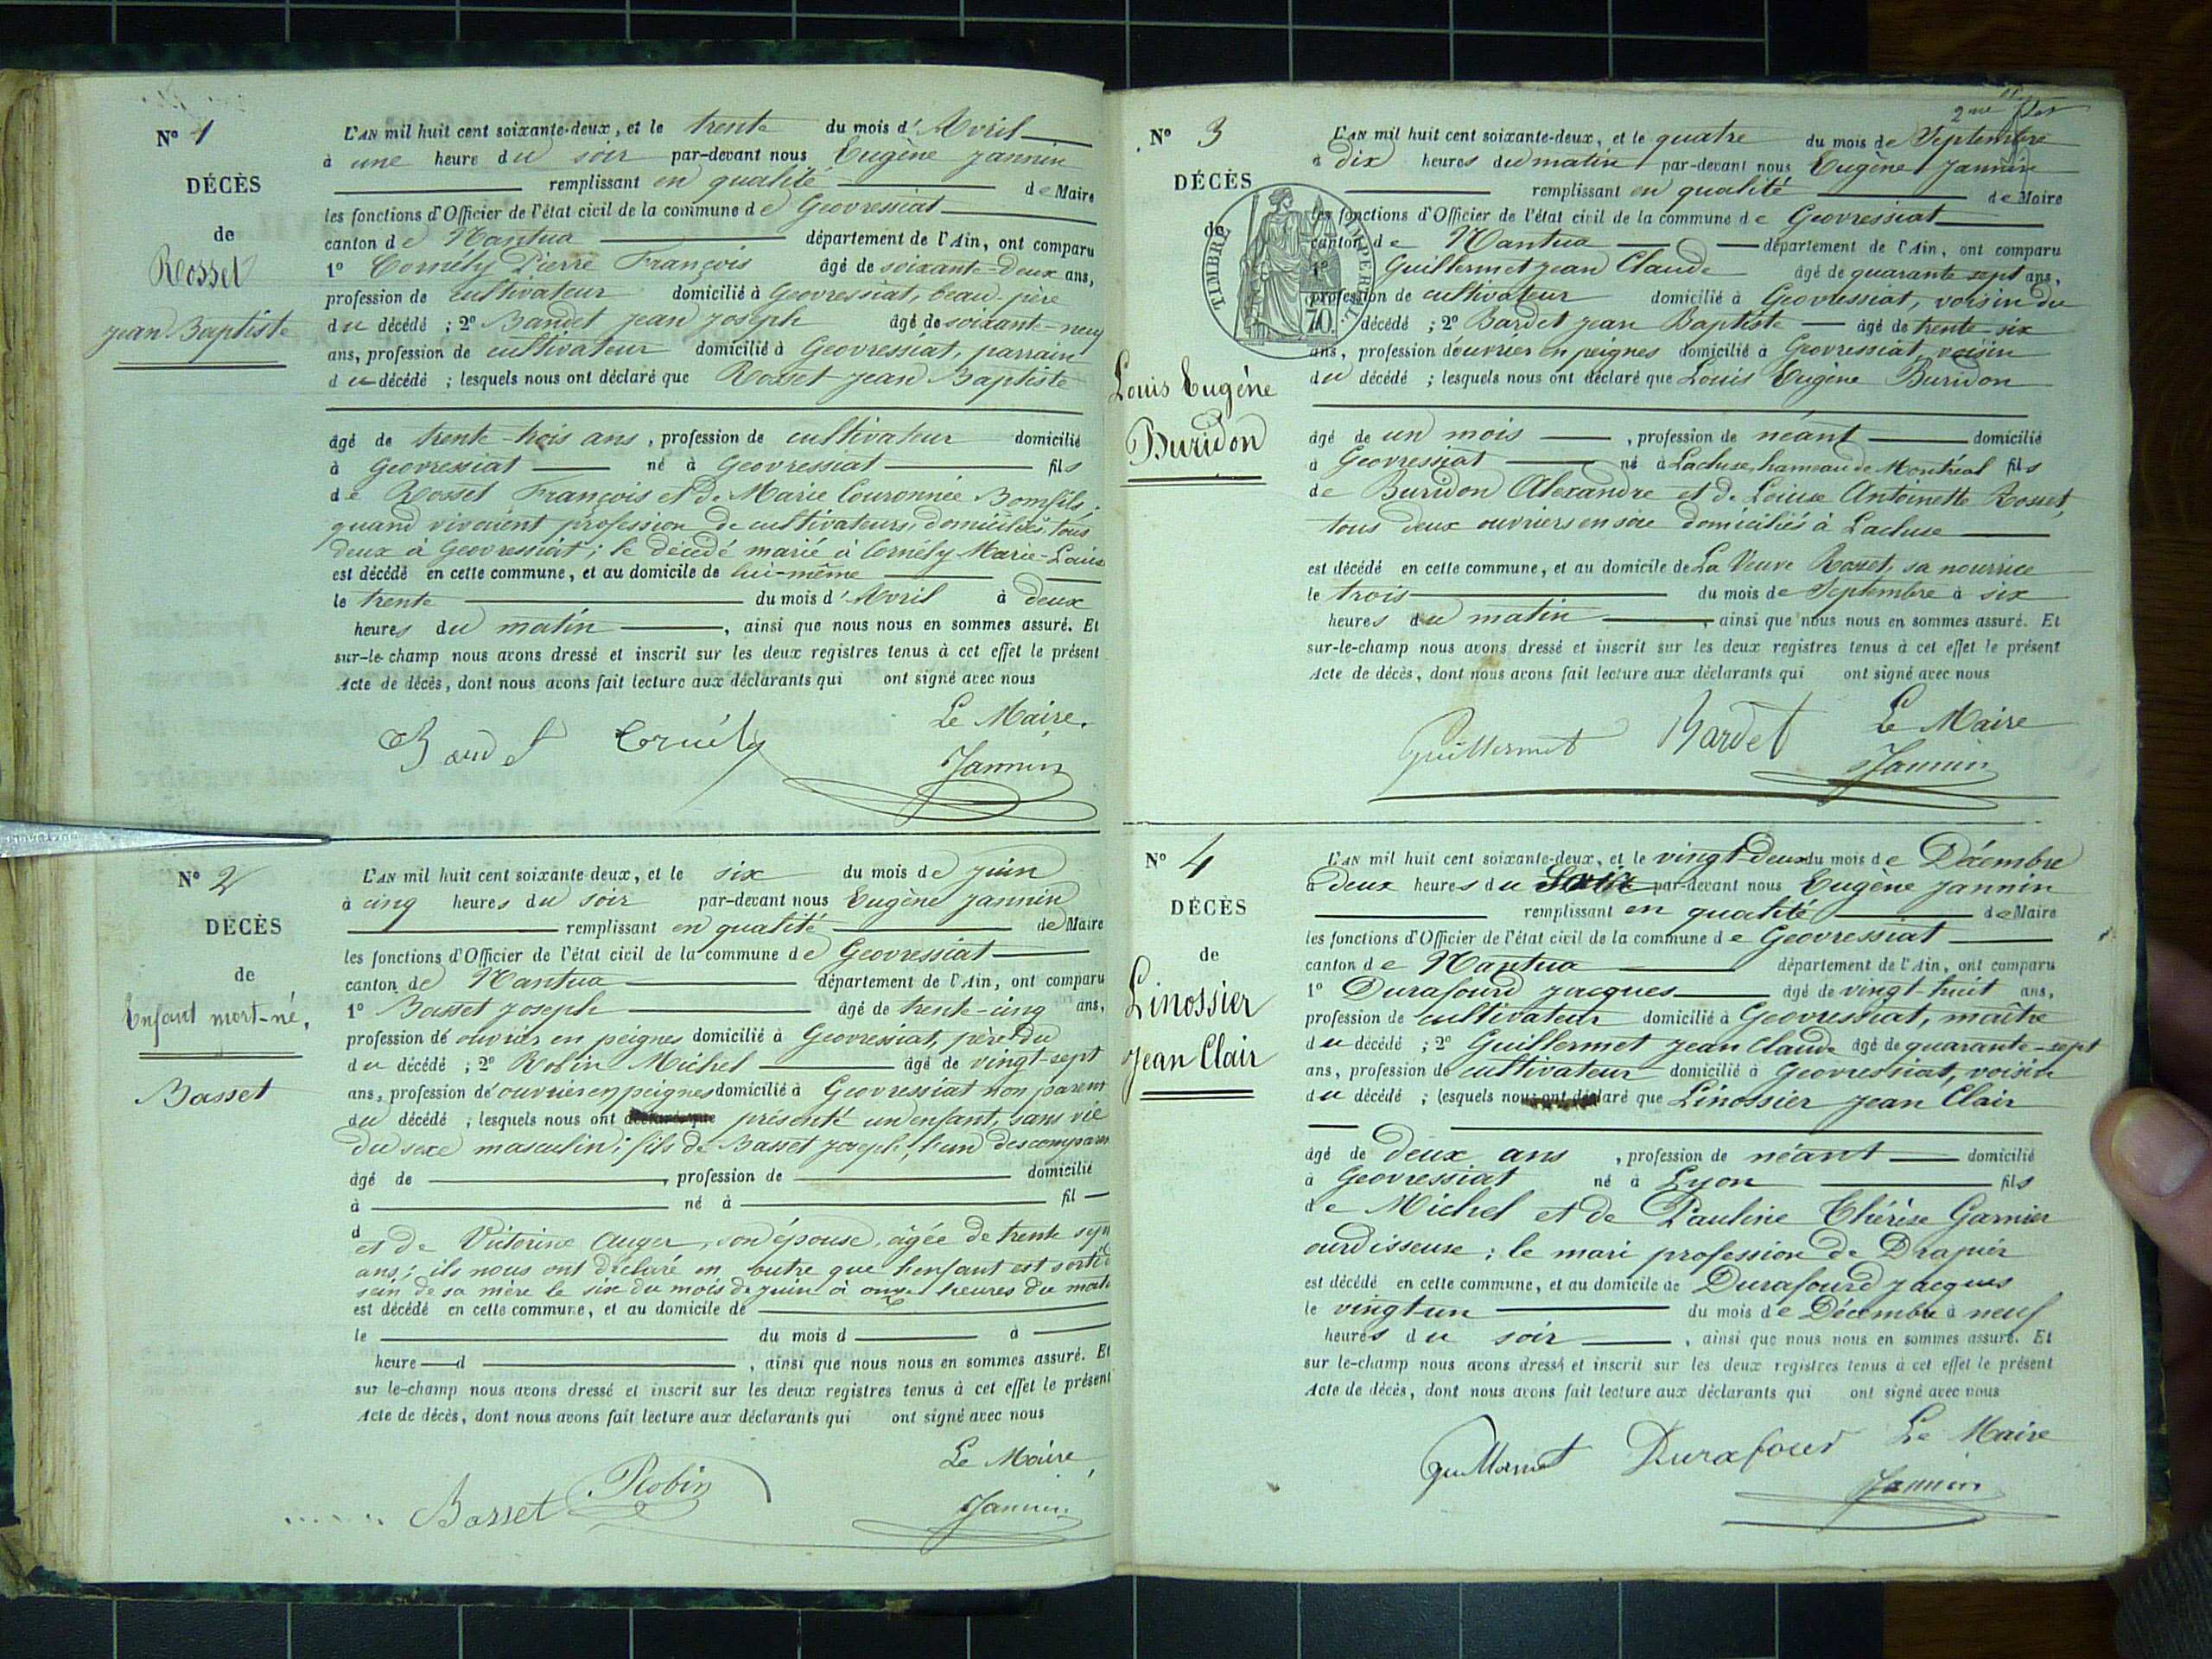 Nº 1
DÉCÈS
de
Rosset
Jean-Baptiste
L'AN mil huit cent soixante-deux, et le trente du mois d'Avril
à une heure du soir par-devant nous Eugène Jannin
remplissant en qualité de Maire
les fonctions d'Officier de l'état civil de la commune de Geovressiat
canton de Nantua département de l'Ain, ont comparu
1º Cornély Pierre François âgé de soixante-deux ans,
profession de cultivateur domicilié à Geovressiat, beau-père
du décédé ; 2º Baudet Jean Joseph âgé de soixante-neuf
ans, profession de cultivateur domicilié à Geovressiat, parrain
du décédé ; lesquels nous ont déclaré que Rosset Jean Baptiste
âgé de trente-trois ans, profession de cultivateur domicilié
à Geovressiat né à Geovressiat fils
de Rosset François et de Marie Couronnée Bonfils ;
quand vivaient profession de cultivateurs, domiciliés tous
deux à Geovressiat ; le décédé marié à Cornély Marie-Louise
est décédé en cette commune, et au domicile de lui-même
le trente du mois d'Avril à deux
heures du matin, ainsi que nous nous en sommes assuré. Et
sur-le-champ nous avons dressé et inscrit sur les deux registres tenus à cet effet le présent
Acte de décès, dont nous avons fait lecture aux déclarants qui ont signé avec nous
Le Maire.
Baudet Cornély Jannin
Nº 2
DÉCÈS
de
Enfant mort-né,
Basset
L'AN mil huit cent soixante-deux, et le six du mois de Juin
à cinq heures du soir par-devant nous Eugène Jannin
remplissant en qualité de Maire
les fonctions d'Officier de l'état civil de la commune de Geovressiat
canton de Nantua département de l'Ain, ont comparu
1º Basset Joseph âgé de trente-cinq ans,
profession de ouvrier en peignes domicilié à Geovressiat, père du
du décédé ; 2º Robin Michel âgé de vingt-sept
ans, profession d'ouvrier en peignes domicilié à Geovressiat non parent
du décédé ; lesquels nous ont déclaré que présenté un enfant, sans vie
du sexe masculin ; fils de Basset Joseph, l'un des comparans
âgé de , profession de domicilié
à né à fil
d
et de Victorine Auger, son épouse, âgée de trente sept
ans ; ils nous ont déclaré en outre que l'enfant est sorti du
sein de sa mère le six du mois de juin à onze heures du matin
est décédé en cette commune, et au domicile de
le du mois d à
heure d , ainsi que nous nous en sommes assuré. Et
sur le-champ nous avons dressé et inscrit sur les deux registres tenus à cet effet le présent
Acte de décès, dont nous avons fait lecture aux déclarants qui ont signé avec nous
Le Maire
Basset Robin Jannin
2me
Nº 3
DÉCÈS
de
Louis Eugène
Buridon
TIMBRE IMPÉRIAL
70.
L'AN mil huit cent soixante-deux, et le quatre du mois de Septembre
à dix heures du matin par-devant nous Eugène Jannin
remplissant en qualité de Maire
les fonctions d'Officier de l'état civil de la commune de Geovressiat
canton de Nantua département de l'Ain, ont comparu
1º Guillermet Jean Claude âgé de quarante sept ans,
profession de cultivateur domicilié à Geovressiat, voisin du
décédé ; 2º Bardet Jean Baptiste âgé de trente-six
ans, profession d'ouvrier en peignes domicilié à Geovressiat, voisin
du décédé ; lesquels nous ont déclaré que Louis Eugène Buridon
âgé de un mois, profession de néant domicilié
à Geovressiat né à Lacluse, hameau de Montréal fils
de Buridon Alexandre et de Louise Antoinette Rosset,
tous deux ouvriers en soie domiciliés à Lacluse
est décédé en cette commune, et au domicile de La Veuve Rosset, sa nourrice
le trois du mois de Septembre à six
heures du matin, ainsi que nous nous en sommes assuré. Et
sur-le-champ nous avons dressé et inscrit sur les deux registres tenus à cet effet le présent
Acte de décès, dont nous avons fait lecture aux déclarants qui ont signé avec nous
Le Maire
Guillermet Bardet Jannin
Nº 4
DÉCÈS
de
Linossier
Jean Clair
L'AN mil huit cent soixante-deux, et le vingt-deux du mois de Décembre
à deux heures du Soir par-devant nous Eugène Jannin
remplissant en qualité de Maire
les fonctions d'Officier de l'état civil de la commune de Geovressiat
canton de Nantua département de l'Ain, ont comparu
1º Durafourd Jacques âgé de vingt-huit ans,
profession de cultivateur domicilié à Geovressiat, maître
du décédé ; 2º Guillermet Jean Claude âgé de quarante-sept
ans, profession de cultivateur domicilié à Geovressiat, voisin
du décédé ; lesquels nous ont déclaré que Linossier Jean Clair
âgé de deux ans, profession de néant domicilié
à Geovressiat né à Lyon fils
de Michel et de Pauline Thérèse Garnier
ourdisseuse ; le mari profession de Drapier
est décédé en cette commune, et au domicile de Durafourd Jacques
le vingt-un du mois de Décembre à neuf
heures du soir, ainsi que nous nous en sommes assuré. Et
sur le-champ nous avons dressé et inscrit sur les deux registres tenus à cet effet le présent
Acte de décès, dont nous avons fait lecture aux déclarants qui ont signé avec nous
Guillermet Durafour Le Maire
Jannin